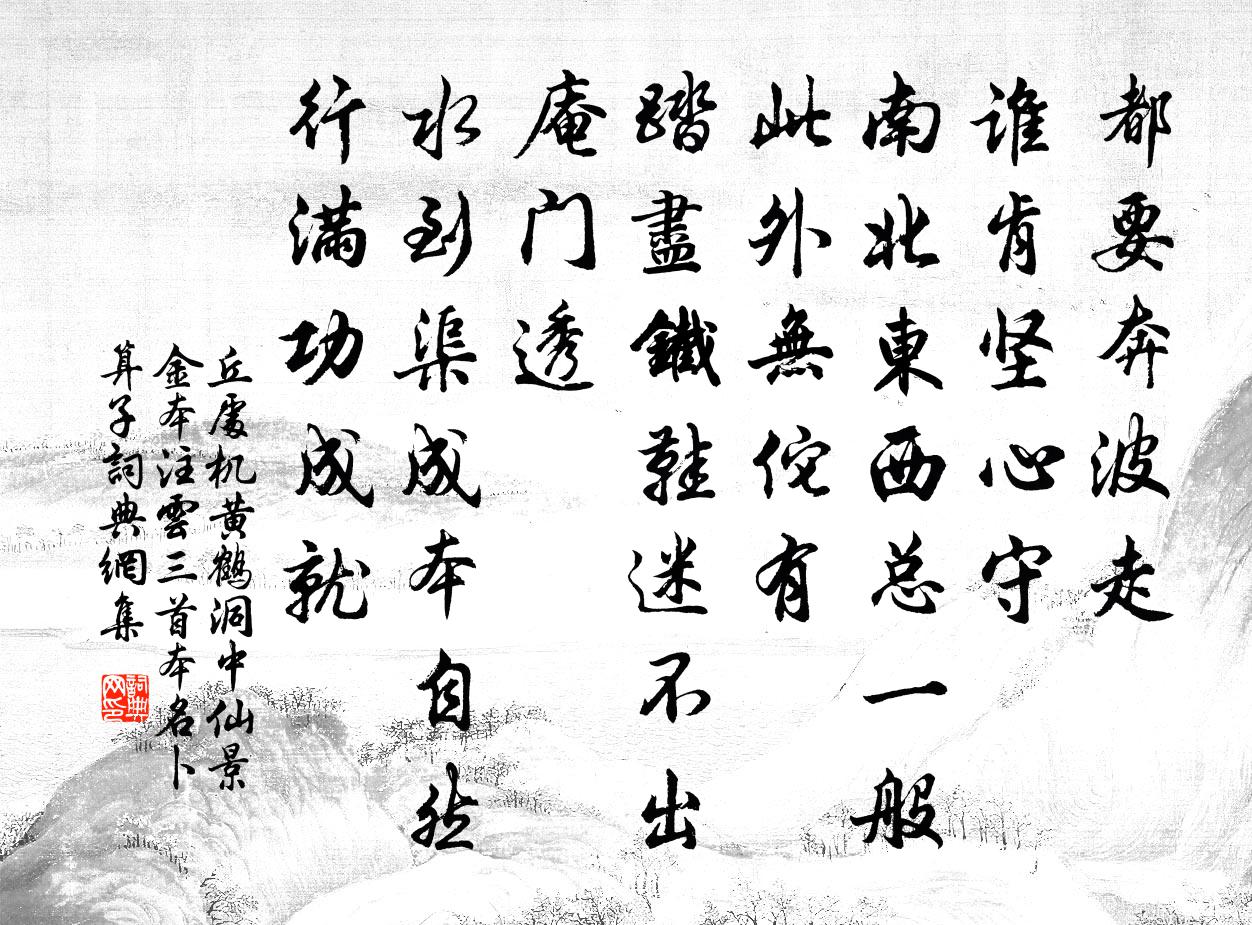 都要奔波走
谁肯坚心守
南北東西总一般
此外無佗有
踏盡鐵鞋迷不出
庵门透
水到渠成本自然
行滿功成就
丘處机黄鹤洞中仙景
金本注雲三首本名卜
算子詞典網集
詞典网印